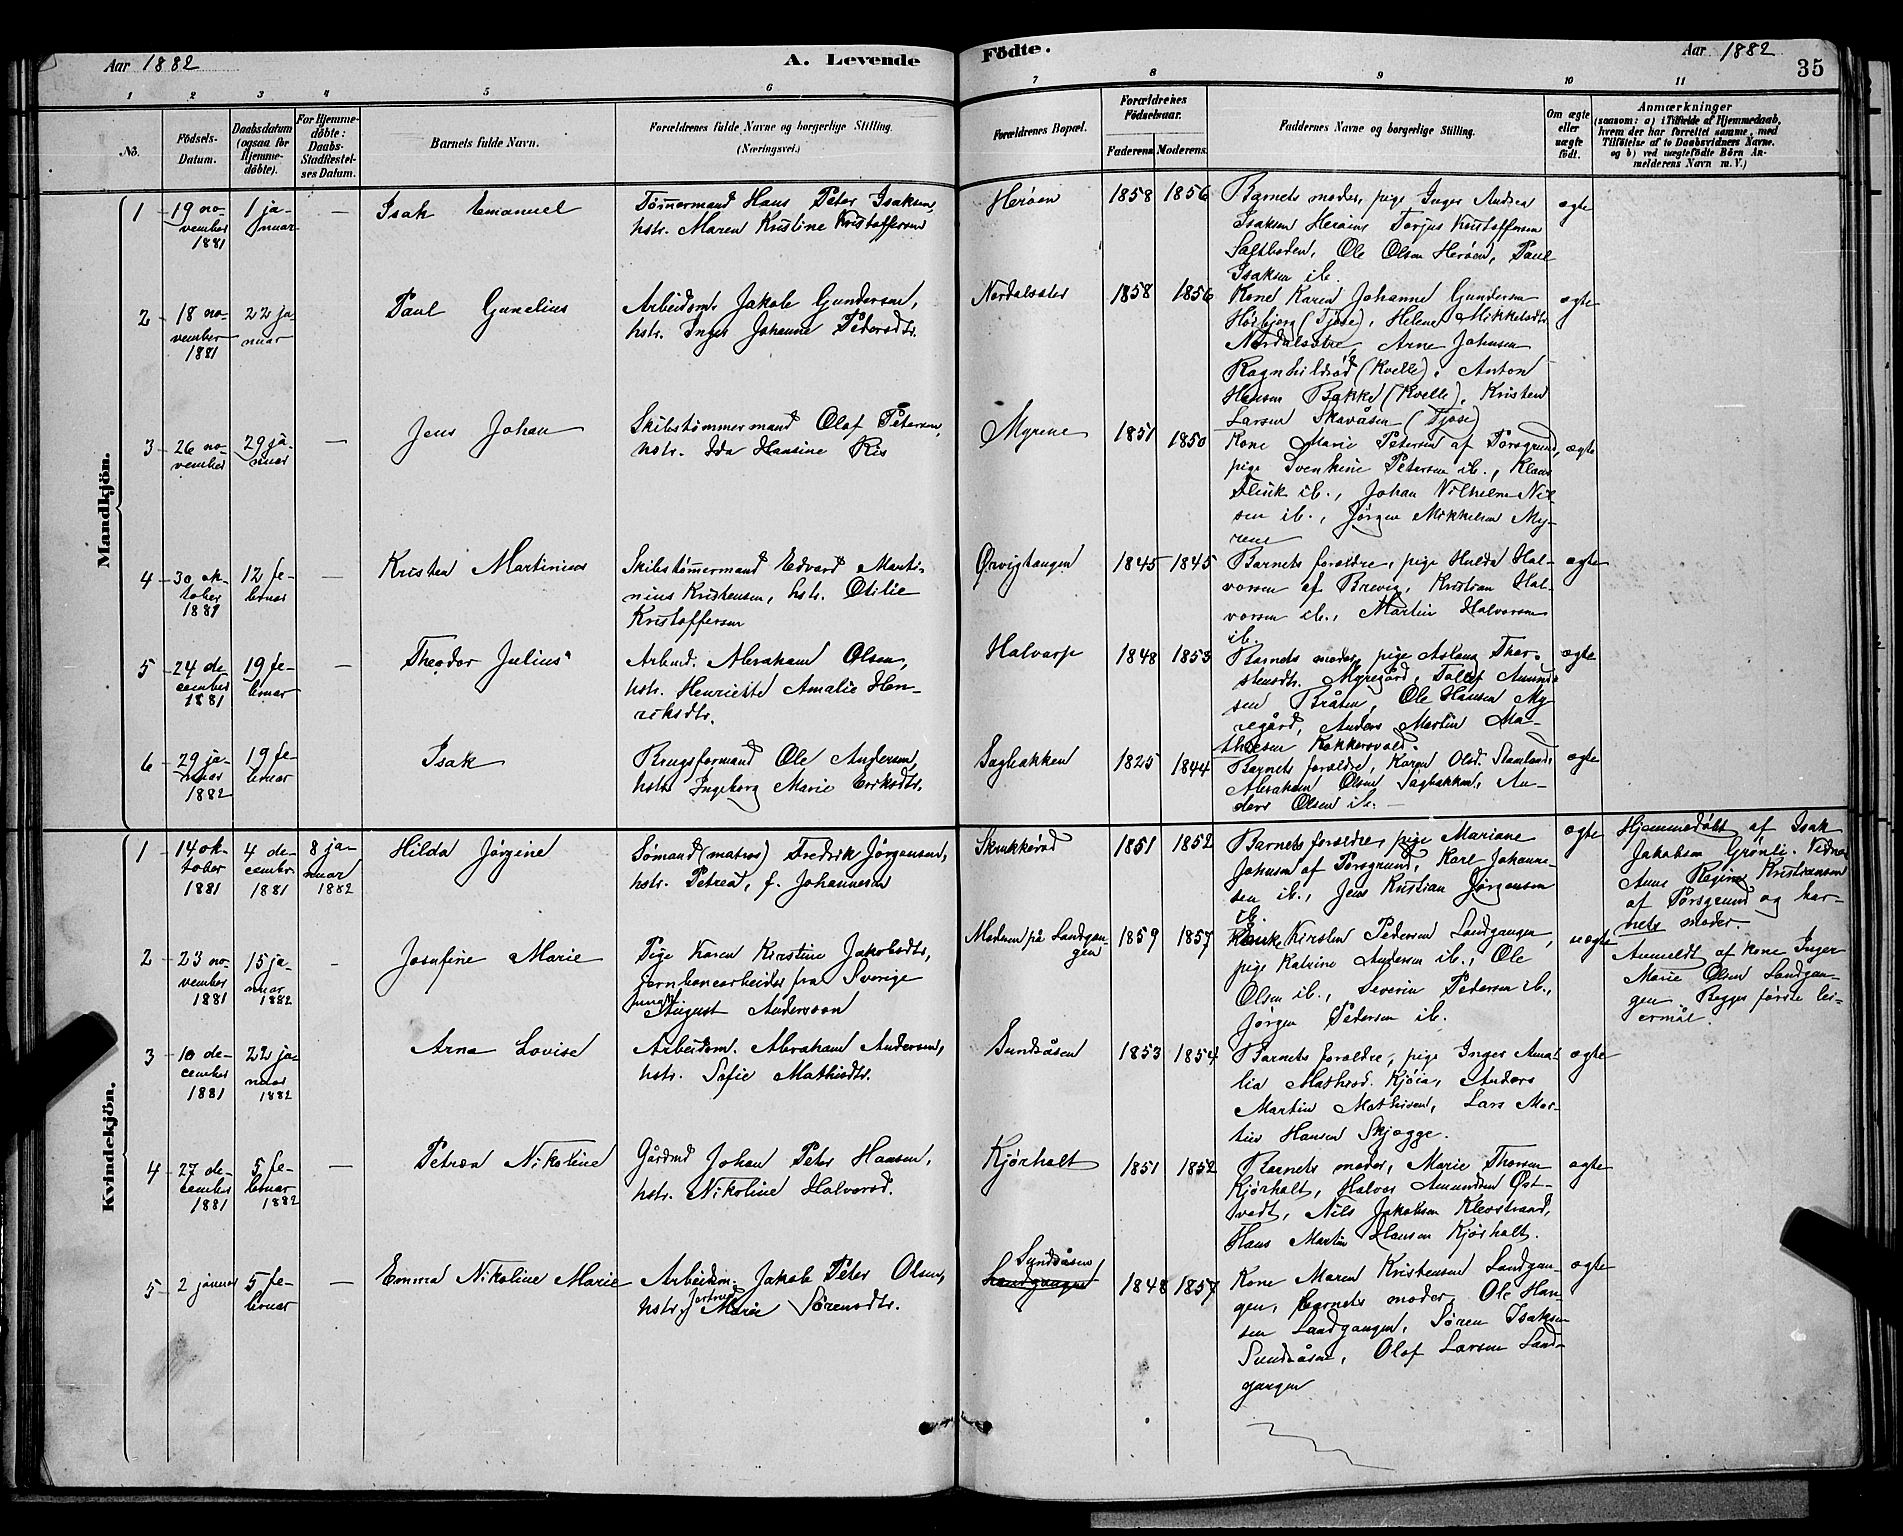 Aar 1882
A. Levende
Födte.
Aar 1882
35
1 2 3 4 5 6 7 8 9 10 11
No.
Födsels-
Datum.
Daabsdatum
(ogsaa for
Hjemme-
döbte).
For Hjemme-
döbte:
Daabs-
Stadfæstel-
ses Datum.
Barnets fulde Navn.
Forældrenes fulde Navne og borgerlige Stilling.
(Næringsvei.)
Forældrenes Bopæl.
Forældrenes
Födselsaar.
Faderens Moderens.
Faddernes Navne og borgerlige Stilling.
Om ægte
eller
uægte
födt.
Anmærkninger
(saasom: a) i Tilfælde af Hjemmedaab,
hvem der har forrettet samme, med
Tilföielse af to Daabsvidners Navne.
og b) ved uægtefödte Börn An-
melderens Navn m. V.)
Mandkjön.
1
19 no-
vember
1881
1 ja-
nuar
—
Isak Emanuel
Tømmermand Hans Peter Isaksen,
hstr. Maren Kristine Kristoffersen
Herøen
1858
1856
Barnets moder, pige Inger Andrea
Isaksen Herøen, Torjus Kristoffersen
Saltboden, Ole Olsen Herøen, Paul
Isaksen ib.
ægte
2
18 no-
vember
1881
22 ja
nuar
Paul Gunelius
Arbeidsm. Jakob Gundersen,
hstr. Inger Johanne Pedersdtr.
Nordalsæter
1858
1856
Kone Karen Johanne Gundersen
(Tjøse), Helene Mikkelsdtr.
Nordalsætre, Arne Johnsen
Ragnhildrød (Kvelle), Anton
Hansen Bakke (Kvelle), Kristen
Larsen Skavåsen (Tjøse)
ægte
3
26 no-
vember
29 ja-
nuar
—
Jens Johan
Skibstømmermand Olaf Petersen,
hstr. Ida Hansine Ris
Myrene
1851
1850
Kone Marie Petersen af Porsgrund,
pige Svenkine Petersen ib., Klaus
Flink ib., Johan Vilhelm Nil-
sen ib., Jørgen Mikkelsen My-
rene
ægte
4
30 ok-
tober
1881
12 fe-
bruar
—
Kristen Martinius
Skibstømmermand Edvard Marti-
nius Kristensen, hstr. Otilie
Kristoffersen
Ørvigtangen
1845
1845
Barnets forældre, pige Hulda Hal-
vorsen af Brevig, Kristian Hal-
vorsen ib., Martin Halvorsen
ib.
ægte
5
24 de-
cember
1881
19 fe-
bruar
—
Theodor Julius
Arbmd. Abraham Olsen,
hstr. Henriette Amalie Hen-
riksdtr.
Halvarp
1848
1853
Barnets moder, pige Aslaug Thor-
stensdtr. Myregård, Tollef Amund-
sen Bråten, Ole Hansen My-
regård, Anders Martin Ma-
thisen Kokkersvold.
ægte
6
29 ja-
nuar
1882
19 fe-
bruar
Isak
Brugsformand Ole Andersen,
hstr. Ingeborg Marie Eriksdtr.
Sagbakken
1825
1844
Barnets forældre, Karen Olsd. Stamland,
Abraham Olsen Sagbakken, An-
ders Olsen ib. —
ægte
Kvindekjön.
1
14 ok-
tober
1881
4 de-
cember
1881
8 ja-
nuar
1882
Hilda Jørgine
Sømand (matros) Fredrik Jørgensen,
hstr. Petrea, f. Johannesen
Skrukkerød
1851
1852
Barnets forældre, pige Mariane
Johnsen af Porsgrund, Karl Johanne-
sen ib., Jens Kristian Jørgensen
ib.
ægte
Hjemmedøbt af Isak
Jakobsen Grønli. Vidner
Anne Regine Kristiansen
af Porsgrund og bar-
nets moder.
2
23 no-
vember
1881
15 ja-
nuar
1882
-
Josefine Marie
Pige Karen Kirstine Jakobsdtr,
jernbanearbeider fra Sverige
ungk. August Andersson
Moderen på Landgan-
gen
1859
1857
Enke Kirsten Pedersen Landgangen,
pige Katrine Andersen ib., Ole
Olsen ib., Severin Pedersen ib.,
Jørgen Pedersen ib.
uægte
Anmeldt af kone Inger
Marie Olsen Landgan-
gen. Begges første lei-
ermål.
3
10 de-
cember
1881
22 ja-
nuar
1882
Arna Lovise
Arbeidsm. Abraham Andersen,
hstr. Sofie Mathisdtr.
Sundsåsen
1853
1854
Barnets forældre, pige Inger Ama-
lia Mathisd. Kjøia, Anders
Martin Mathisen, Lars Mar-
tin Hansen Skjægge.
ægte
4
27 de-
cember
1881
5 fe-
bruar
1882
—
Petrea Nikoline
Gårdmd Johan Peter Hansen,
hstr. Nikoline Halvorsd.
Kjørholt
1851
1852
Barnets moder, Marie Thorsen
Kjørholt, Halvor Amundsen Øst-
vedt, Nils Jakobsen Klevstrand,
Hans Martin Hansen Kjørholt.
ægte
5
2 januar
5 fe-
bruar
—
Emma Nikoline Marie
Arbeidsm. Jakob Peter Olsen,
hstr. Jertrud Marie Sørensdtr.
Sundsåsen
Landgangen
1848
1857
Kone Maren Kristensen Landgan-
gen, barnets moder, Ole Han-
sen Landgangen, Søren Isaksen
Sundsåsen, Olaf Larsen Land-
gangen
ægte